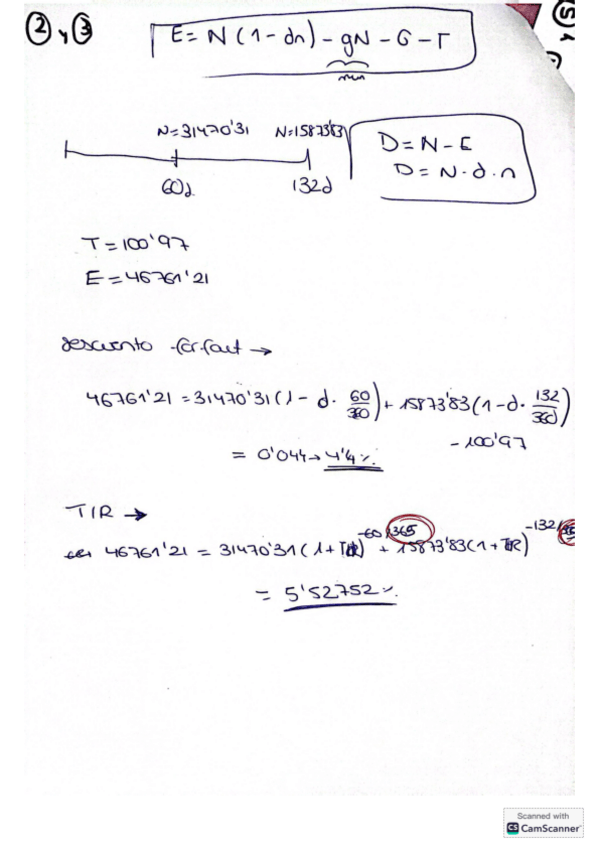 ② y ③
E = N (1 - dn) - gN - G - T
N=31470'31 N=15873'83
60d 132d
D = N - E
D = N · d · n
T = 100'97
E = 46761'21
46761'21 = 31470'31 (1 - d · 60/360) + 15873'83 (1 - d · 132/360)
- 100'97
= 0'044 → 4'4%
TIR →
46761'21 = 31470'31 (1 + TIR)^-60/365 + 15873'83 (1 + TIR)^-132/
= 5'52752%
Scanned with
CS CamScanner